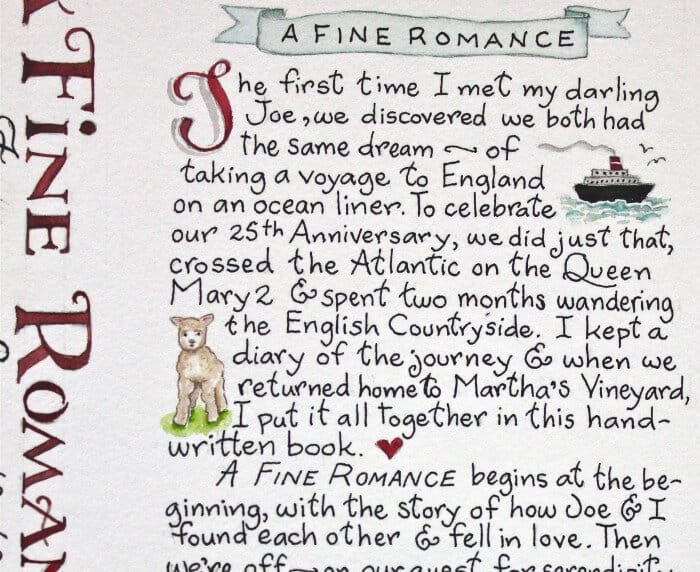 A FINE ROMANCE
The first time I met my darling
Joe, we discovered we both had
the same dream ~ of
taking a voyage to England
on an ocean liner. To celebrate
our 25th Anniversary, we did just that,
crossed the Atlantic on the Queen
Mary 2 & spent two months wandering
the English Countryside. I kept a
diary of the journey & when we
returned home to Martha's Vineyard,
I put it all together in this hand-
written book.
A FINE ROMANCE begins at the be-
ginning, with the story of how Joe & I
found each other & fell in love. Then
we're off ~ on our quest for serendipity
FINE ROMAN